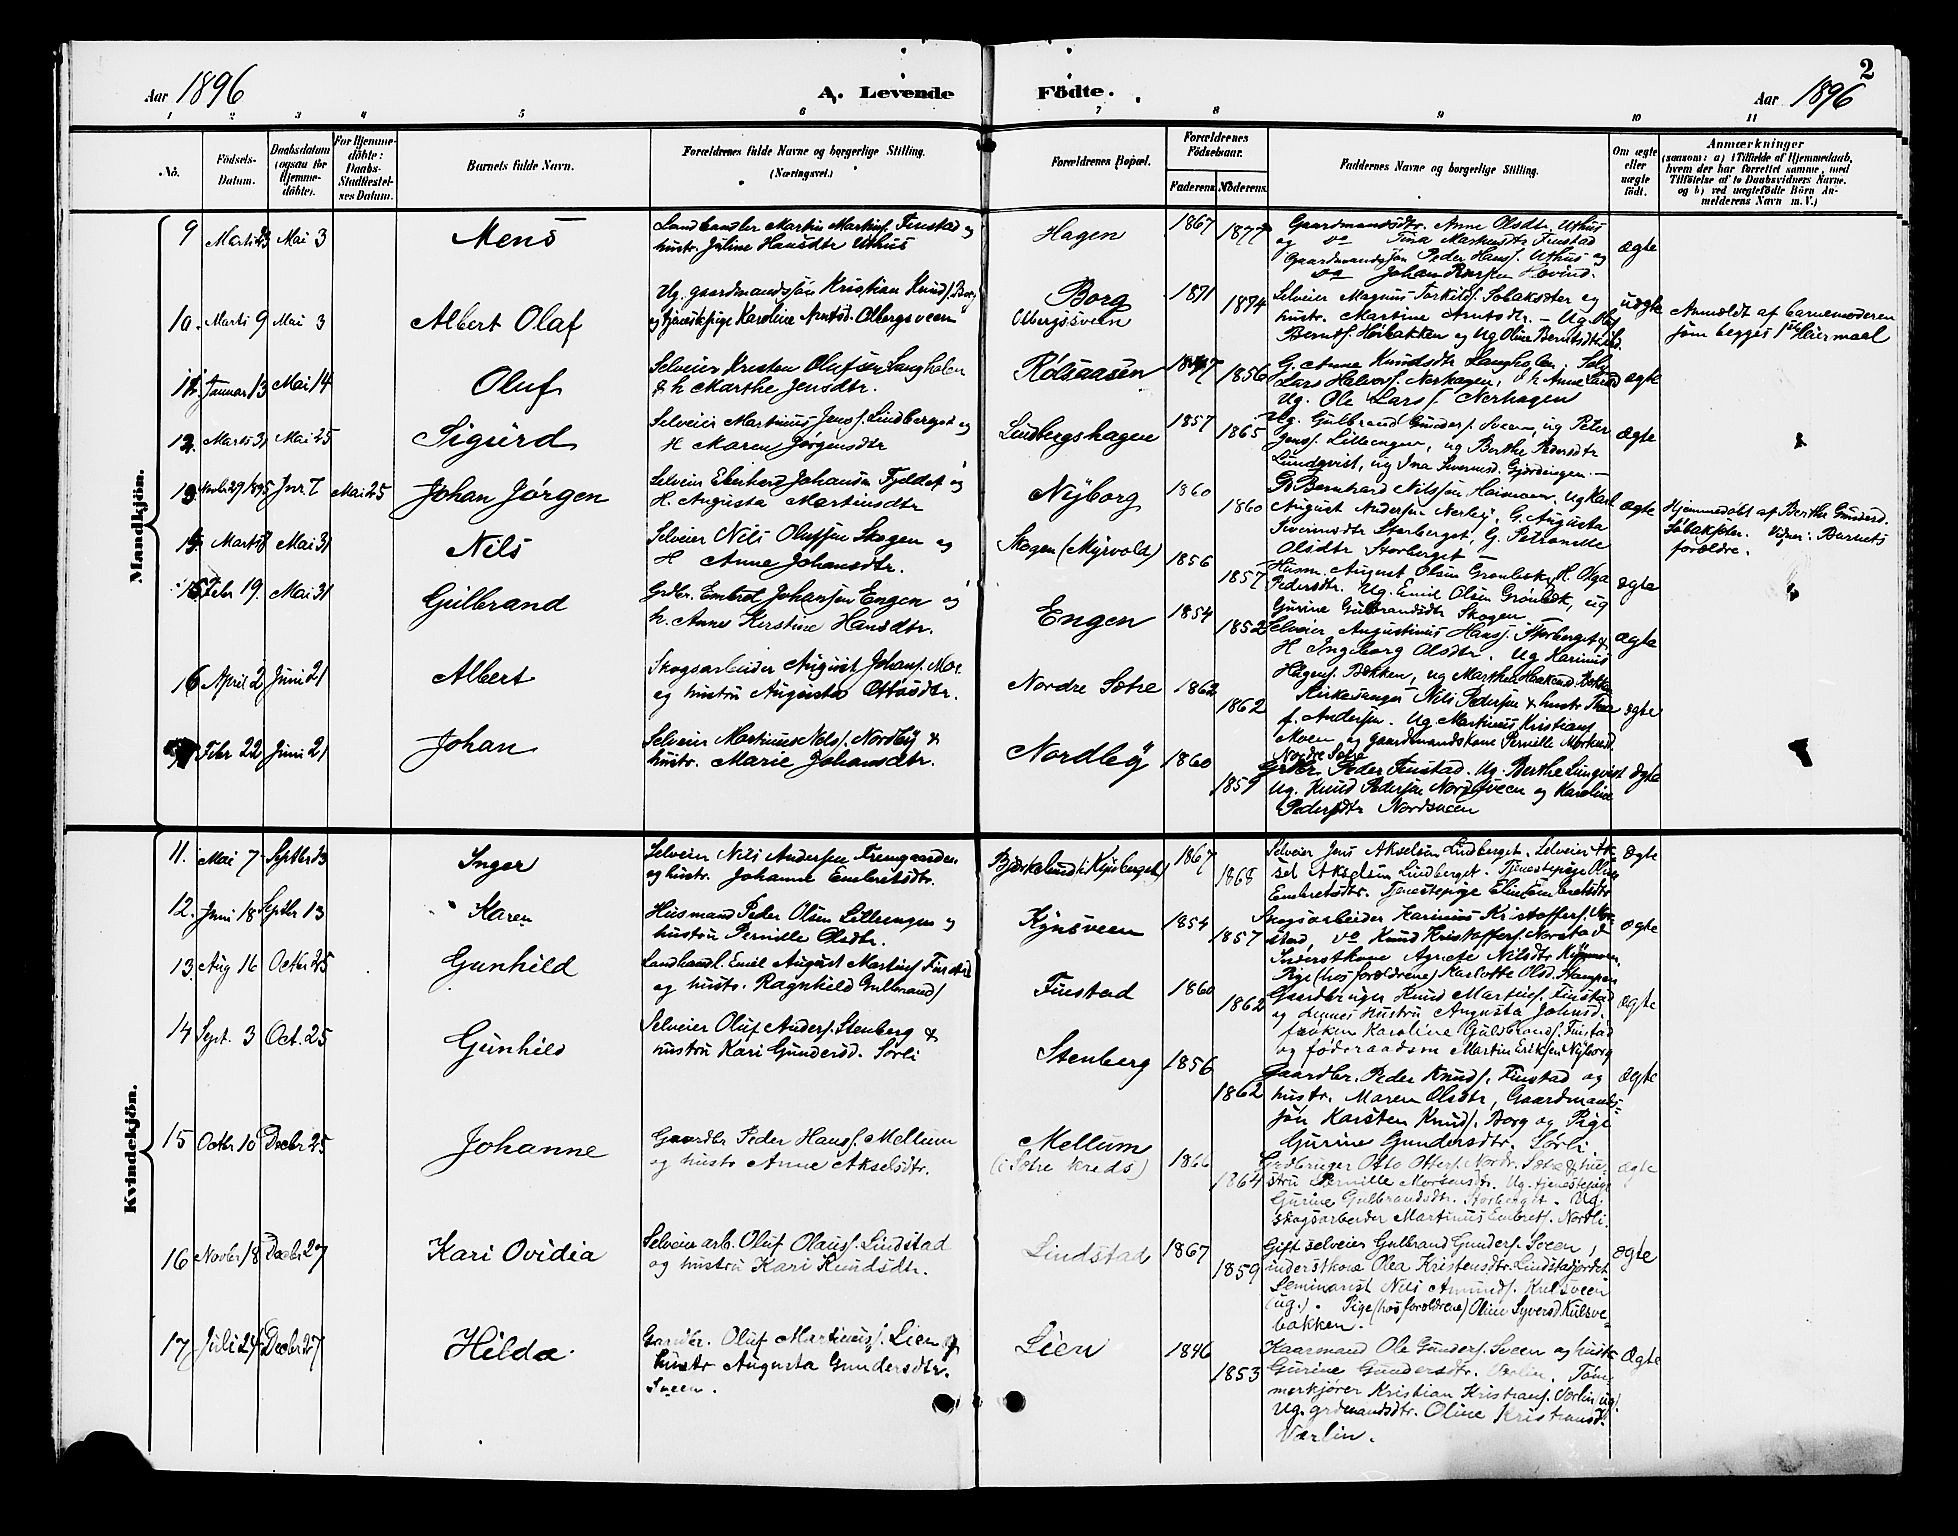 Aar 1896
A. Levende Födte.
2
Aar 1896
1 2 3 4 5 6 7 8 9 10 11
No.
Födsels-Datum.
Daabsdatum (ogsaa for Hjemmedöbte).
For Hjemmedöbte: Daabs-Stadfæstelses Datum.
Barnets fulde Navn.
Forældrenes fulde Navne og borgerlige Stilling.
(Næringsvei.)
Forældrenes Bopæl.
Forældrenes Födselsaar.
Faderens. Moderens.
Faddernes Navne og borgerlige Stilling.
Om ægte eller uægte födt.
Anmærkninger
(saasom: a) i Tilfælde af Hjemmedaab, hvem der har forrettet samme, med Tilföielse af to Daabsvidners Navne, og b) ved uægtefödte Börn Anmelderens Navn m. V.)
Mandkjön.
9 Marts 23 Mai 3 Mens
Landhandler Martin Martins. Finstad og
hustr. Juline Hansdtr Uthus
Hagen 1867 1877
Gaardmandsdtr. Anne Olsdtr. Uthus
og do Tina Martinsdtr Finstad
Gaardmandssøn Peder Hans. Uthus og
do Johan
ægte
10. Marts 9 Mai 3 Albert Olaf
Ug. gaardmandssøn Kristian Knuds. Borg
og tjenestepige Karoline Arntsd. Olbergsveen
Borg
Olbergsveen 1871 1874
Selveier Magnus Torkilds. Sobaksæter og
hustr. Martine Arntsdtr. - Ug. Olaf
Bernts. Høibakken og Ug Oline Berntsdtr
uægte
Anmeldt af barnemoderen
som begges 1ste Leiermaal
11. Januar 13 Mai 14 Oluf
Selveier Kresten Olufsen Langholen
& h Marthe Jensdtr
Rølsaasen 1856
G. Anne Knudsdtr Langholen Selv.
Lars Halvors. Nerhagen, & h Anne Larsd
Ug. Ole Lars. Nerhagen
ægte
12. Marts 31 Mai 25 Sigurd
Selveier Martinus Jens. Lindberget og
H Maren Jørgensdtr
Lindbergshagen 1857 1865
Ug. Gulbrand Gunders. Sveen, ug Peter
Jens. Lillengen, ug Berthe Pedersdtr
Lundqvist, ug Ina Gjerdingen.
ægte
13 Novbr 29 1895 Jnr. 7 Mai 25 Johan Jørgen
Selveier Eberhard Johansen Fjeldet og
H. Augusta Martinusdtr
Nyborg 1860 1860
G. Bernhard Nilssøn Heimoen. Ug Karl
August Andersen Nerby, G. Augusta
Storberget, G. Petronelle
Olsdtr Storberget
ægte
Hjemmedøbt af Berthe Gundersd.
Vidner: Barnets
forældre.
14 Marts 8 Mai 31 Nils
Selveier Nils Olufsen Skogen og
H Anne Johansdtr.
Skogen (Myrvold) 1856 1857
Husm. August Olsen Grønbek, H. Olga
Pedersdtr. Ug. Emil Olsen Grønbek, ug
Gurine Gulbrandsdtr Skogen
ægte
15 Febr 19. Mai 31 Gulbrand
Grdbr. Embret Johansen Engen og
h. Anne Kerstine Hansdtr.
Engen 1854 1852
Selveier Augustinus Hans. Storberget &
H Ingeborg Olsdtr. Ug Karinus
Hagens. Bekken, ug Marthe Haakensd Bekken
ægte
16 April 2 Juni 21 Albert
Skogsarbeider August Johans. Moe
og hustru Augusta Ottosdtr.
Nordre Sætre 1862 1862
Kirkesanger Nils Pedersen & hustr Thea
f. Andersen. Ug Martinus Kristians.
Moen og gaardmandskone Pernille Mortensd.
Nordre Sætre
ægte
17 Febr 22 Juni 21 Johan
Selveier Martinus Nils. Nordby &
hustr. Marie Johansdtr.
Nordby 1860 1859
Grdbr. Peder Finstad. Ug. Berthe Linqvist
Ug. Knud Pedersen Nordsveen og Karoline
Pedersdtr Nordsveen
ægte
Kvindekjön.
11. Mai 7 Septbr 13 Inger
Selveier Nils Andersen Fremgaarden
og hustr. Johanne Embretsdtr.
Bjerkelund (Kynberget) 1867 1868
Selveier Jens Akselsen Lindberget. Selveier Ak-
sel Akselsen Lindberget. Tjenestepige Oline
Embretsdtr. Tjenestepige Elin Embretsdtr
ægte
12. Juni 18 Septbr 13 Karen
Husmand Peder Olsen Lillengen og
hustru Pernille Olsdtr.
Kynsveen 1854 1857
Skogsarbeider Karinus Kristoffers. Nor-
stad, do Knud Kristoffers. Norstad
Inderstkone Agnete Nilsdtr Kynmoen
Pige (hos forældrene) Karlotte Olsd. Kampen
ægte
13. Aug 16 Octbr 25 Gunhild
Landhandl. Emil August Martins. Finstad
og hustr. Ragnhild Gulbrands.
Finstad 1860 1862
Gaardbruger Knud Martins. Finstad
og dennes hustru Augusta Johnsd.
frøken Karoline Gulbrands. Finstad
og føderaadsm Martin Eriksen Nyborg
ægte
14 Sept. 3 Oct. 25 Gunhild
Selveier Oluf Anders. Stenberg &
hustru Kari Gundersd. Sørli
Stenberg 1856 1862
Gaardbr. Peder Knuds. Finstad og
hustr. Maren Olsdtr, Gaardmands-
søn Karsten Knuds. Borg og Pige
Gurine Gundersdtr. Sørli.
ægte
15 Octbr 10 Decbr 25 Johanne
Gaardbr Peder Hans. Mellum
og hustr Anne Akselsdtr.
Mellum
(i Sætre kreds) 1866 1864
Jordbruger Otto Otters. Nordr. Sætre & hu-
stru Pernille Mortensdtr. Ug. tjenestepige
Gurine Gulbrandsdtr. Storberget. Ug.
skogsarbeider Martinus Embrets. Nordli.
ægte
16 Novbr 18 Decbr 27 Kari Ovidia
Selveier arb. Oluf Olaus. Lindstad
og hustru Kari Knudsdtr.
Lindstad 1867 1859
Gift selveier Gulbrand Gunders. Sveen,
inderstkone Olea Kristensdtr. Lindstadjordet
Seminarist Nils Amunds. Kulsveen
(ug.). Pige (hos forældrene) Oline Syversd Kulsve-
bakken.
ægte
17 Juli 24 Decbr 27 Hilda
Gaardbr. Oluf Martinus. Lien og
hustr Augusta Gundersdtr.
Sveen.
Lien 1846 1853
Kaarmand Ole Gunders. Sveen og hustr.
Gurine Gundersdtr. Værlin, Tøm-
merkjører Kristian Kristians. Værlin (ug).
Ug. grdmandsdtr. Oline Kristiansd.
Værlin.
ægte